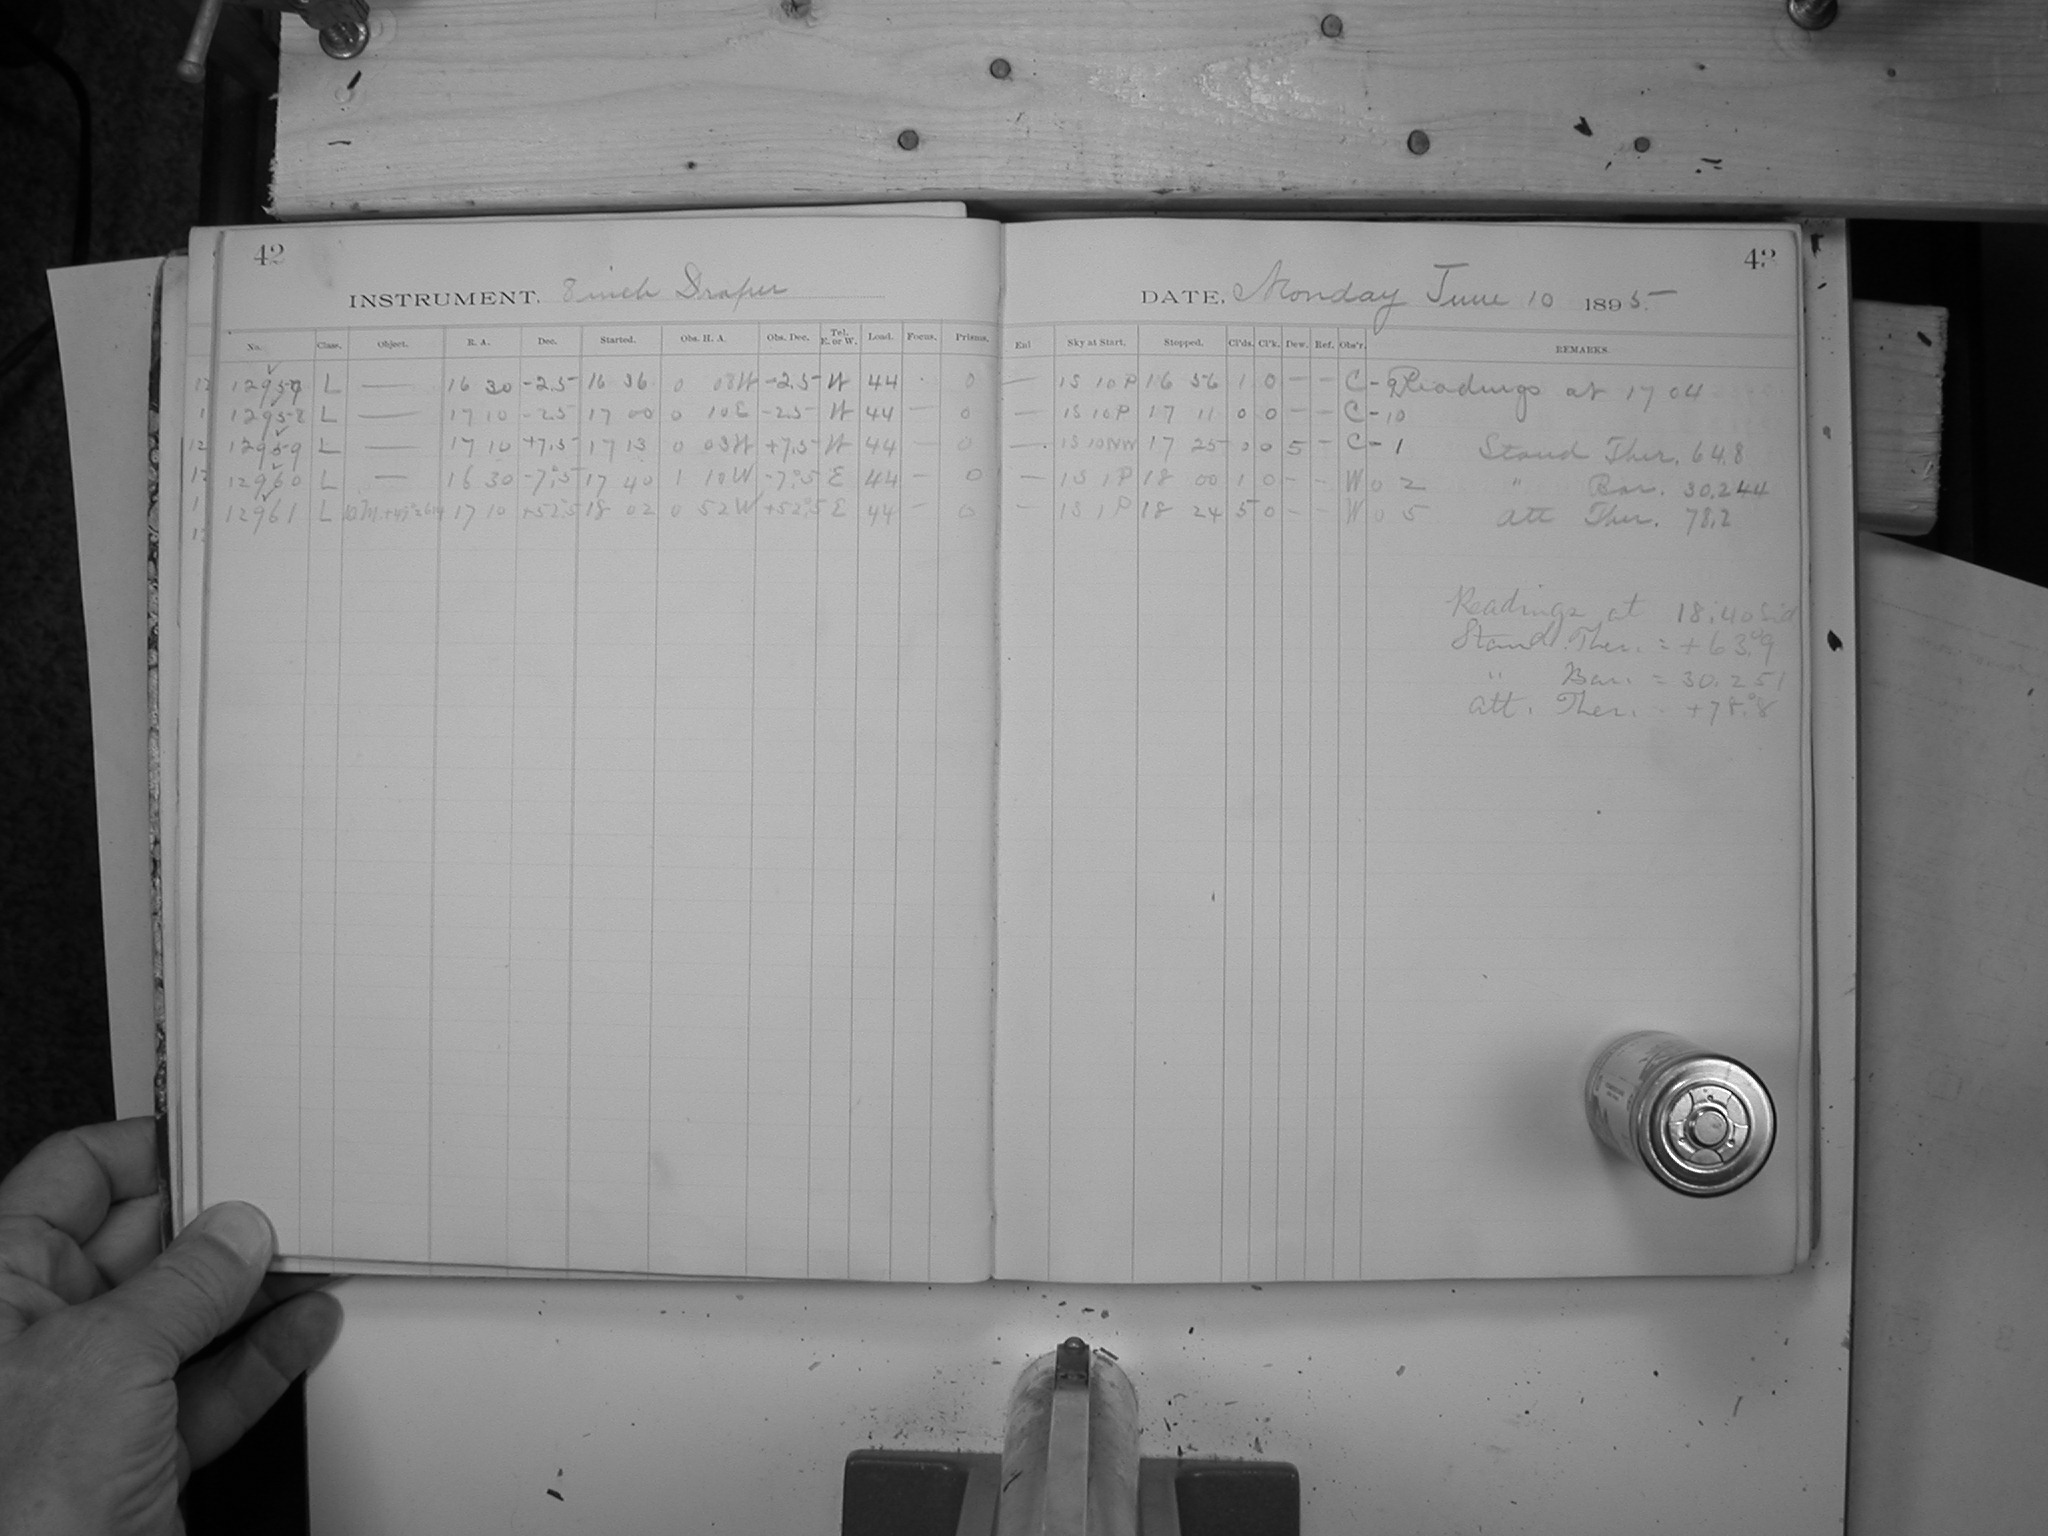 42
43
INSTRUMENT. 8 inch Draper
DATE, Monday June 10 1895
No. Class. Object. R. A. Dec. Started. Obs. H. A. Obs. Dec. Tel. E. or W. Load. Focus. Prisms. Enl Sky at Start. Stopped. Cl'ds. Cl'k. Dew. Ref. Obs'r. REMARKS.
12957 L — 16 30 -2.5 16 36 0 08W -2.5 W 44 0 — 1S 10P 16 56 1 0 — — C -9 Readings at 17 04
12958 L — 17 10 -2.5 17 00 0 10E -2.5 W 44 — 0 — 1S 10P 17 11 0 0 — — C -10
12959 L — 17 10 +7.5 17 13 0 03W +7.5 W 44 — 0 — 1S 10NW 17 25 0 0 5 — C -1 Stand Ther. 64.8
12960 L — 16 30 -7°.5 17 40 1 10W -7°.5 E 44 — 0 — 1S 1P 18 00 1 0 — — W 0 2 " Bar. 30.244
12961 L 17 10 +52°.5 18 02 0 52W +52°.5 E 44 — 0 — 1S 1P 18 24 5 0 — — W 0 5 Att Ther. 78.2
Readings at 18:40 Sid
Stand. Ther. = +63°.9
" Bar. = 30.251
Att. Ther. +78°.8